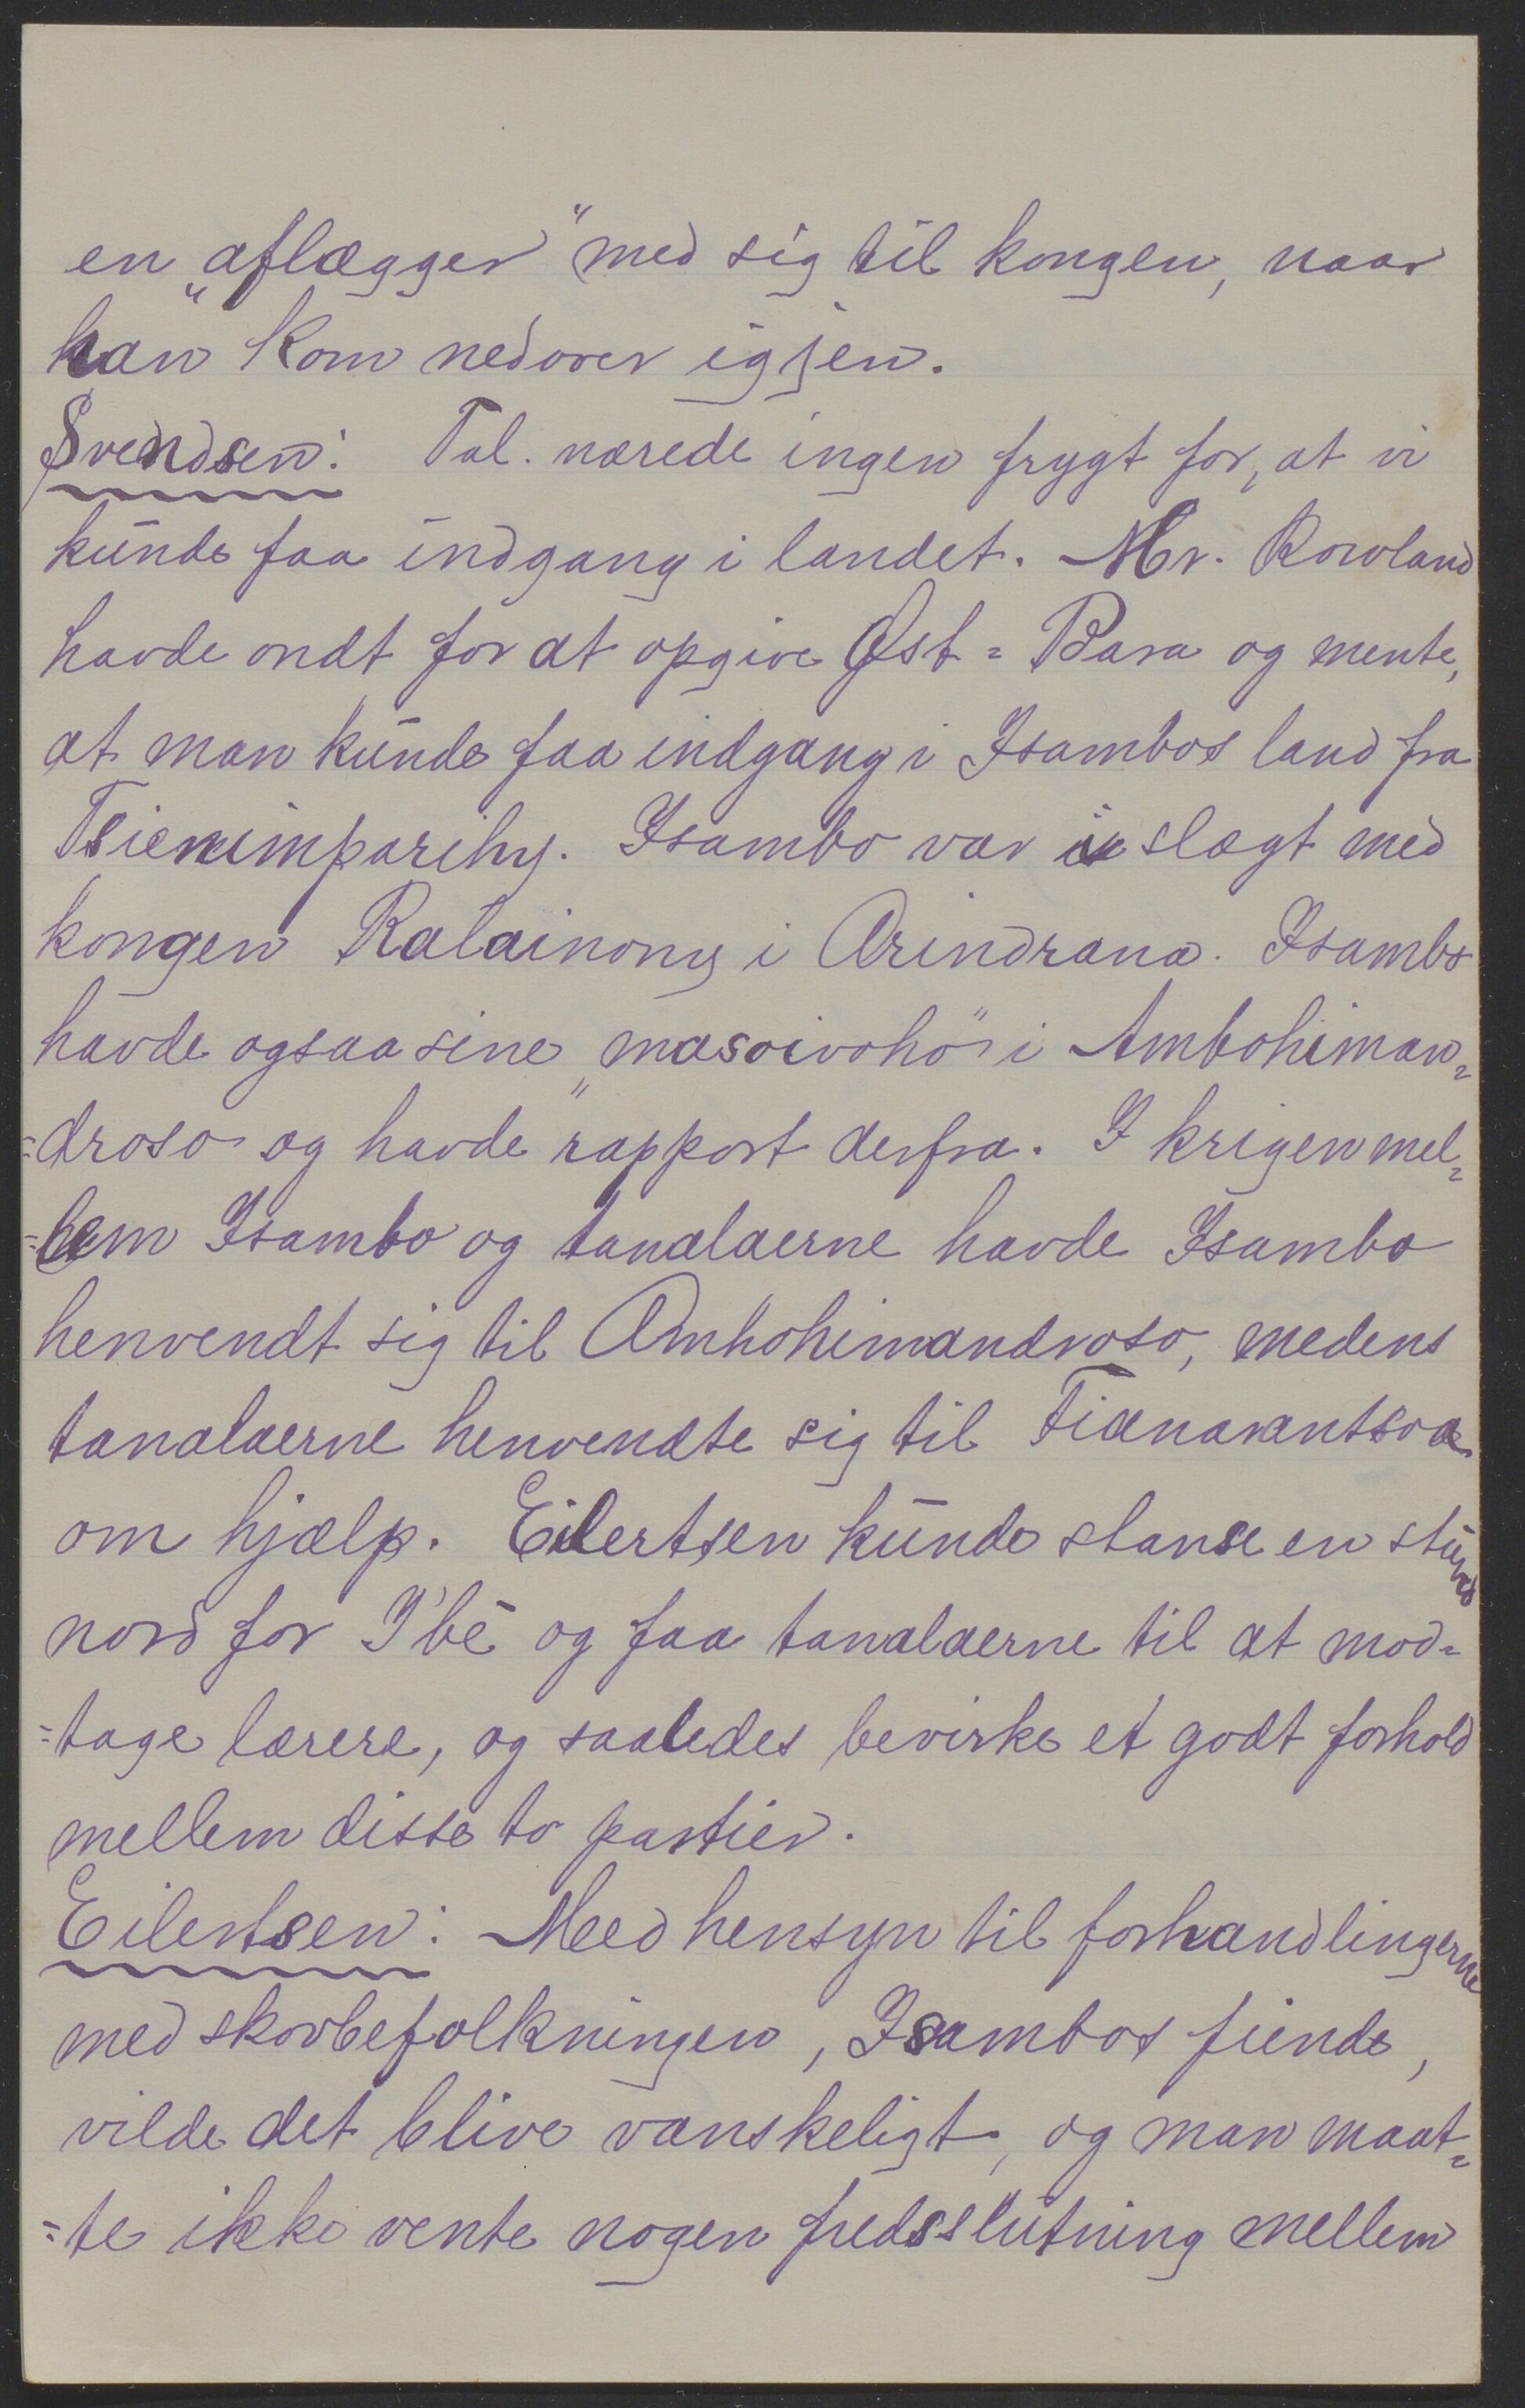 en „aflægger" med sig til kongen, naar
han kom nedover igjen.
Svendsen: Tal. nærede ingen frygt for, at vi
kunde faa indgang i landet. Mr. Rowland
havde ondt for at opgive Øst=Bara og mente,
at man kunde faa indgang i Isambos land fra
Tsienimparihy. Isambo var i slægt med
kongen Ratainony i Arindrana. Isambo
havde ogsaa sine „masoivoho" i Ambohiman=
=droso og havde rapport derfra. I krigen mel=
=lem Isambo og tanalaerne havde Isambo
henvendt sig til Ambohimandroso, medens
tanalaerne henvendte sig til Fianarantsoa
om hjælp. Eilertsen kunde stanse en stund
nord for I'bé og faa tanalaerne til at mod=
=tage lærere, og saaledes bevirke et godt forhold
mellem disse to partier.
Eilertsen: Med hensyn til forhandlingerne
med skovbefolkningen, Isambos fiende,
vilde det blive vanskeligt, og man maat=
=te ikke vente nogen fredsslutning mellem